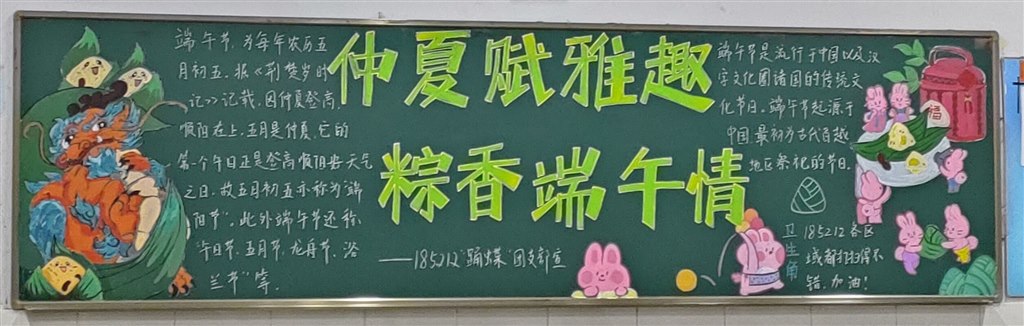 仲夏赋雅趣
粽香端午情
端午节，为每年农历五
月初五。据《荆楚岁时
记》记载，因仲夏登高，
顺阳在上，五月是仲夏，它的
第一个午日正是登高顺阳好天气
之日，故五月初五亦称为“端
阳节”。此外端午节还称
“午日节、五月节、龙舟节、浴
兰节”等。
——185212“踊燥”团支部宣
端午节是流行于中国以及汉
字文化圈诸国的传统文
化节日。端午节起源于
中国，最初为古代百越
地区祭祀的节日。
卫生角
185212各区
域都打扫得不
错，加油！